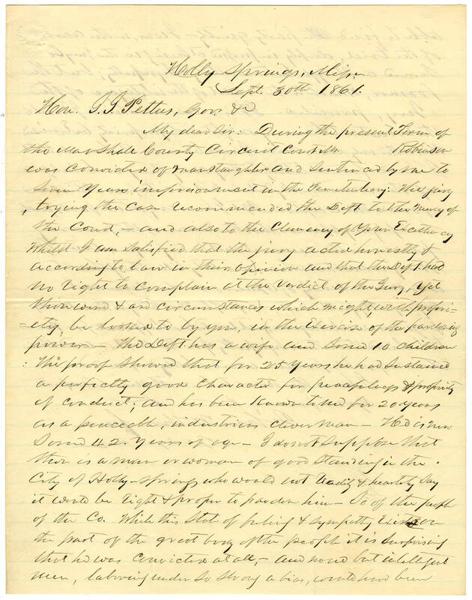 Holly Springs, Miss.
Sept. 30th 1861.
Hon. J. J. Pettus, Gov. &c
My dear Sir: During the present Term of
the Marshall County Circuit Court Mr Robinson
was convicted of manslaughter and sentenced by me to
Seven Years imprisonment in the Penitentiary: The jury
trying the case recommended the Deft to the mercy of
the Court, – and also to the Clemency of Your Excellency
Whilst I am satisfied that the jury acted honestly &
according to law in their opinion and that the Deft had
no right to complain at the verdict of the Jury, Yet
there were circumstances which might, with propri-
ety, be looked to by you, in the exercise of the pardoning
power – The Deft has a wife and some 10 children
: The proof showed that for 25 years he had sustained
a perfectly good character for peacefulness & propriety
of conduct; and has been known to me for 20 years
as a peaceable, industrious clever man – He is now
some 42 years of age – I do not suppose that
there is a man or woman of good standing in the
City of Holly-Springs who would not readily & heartily say
it would be right & proper to pardon him – So of the people
of the Co. While this state of feeling & sympathy exists on
the part of the great body of the people it is surprising
that he was convicted at all, – and none but intelligent
men, laboring under so strong a bias, would have been